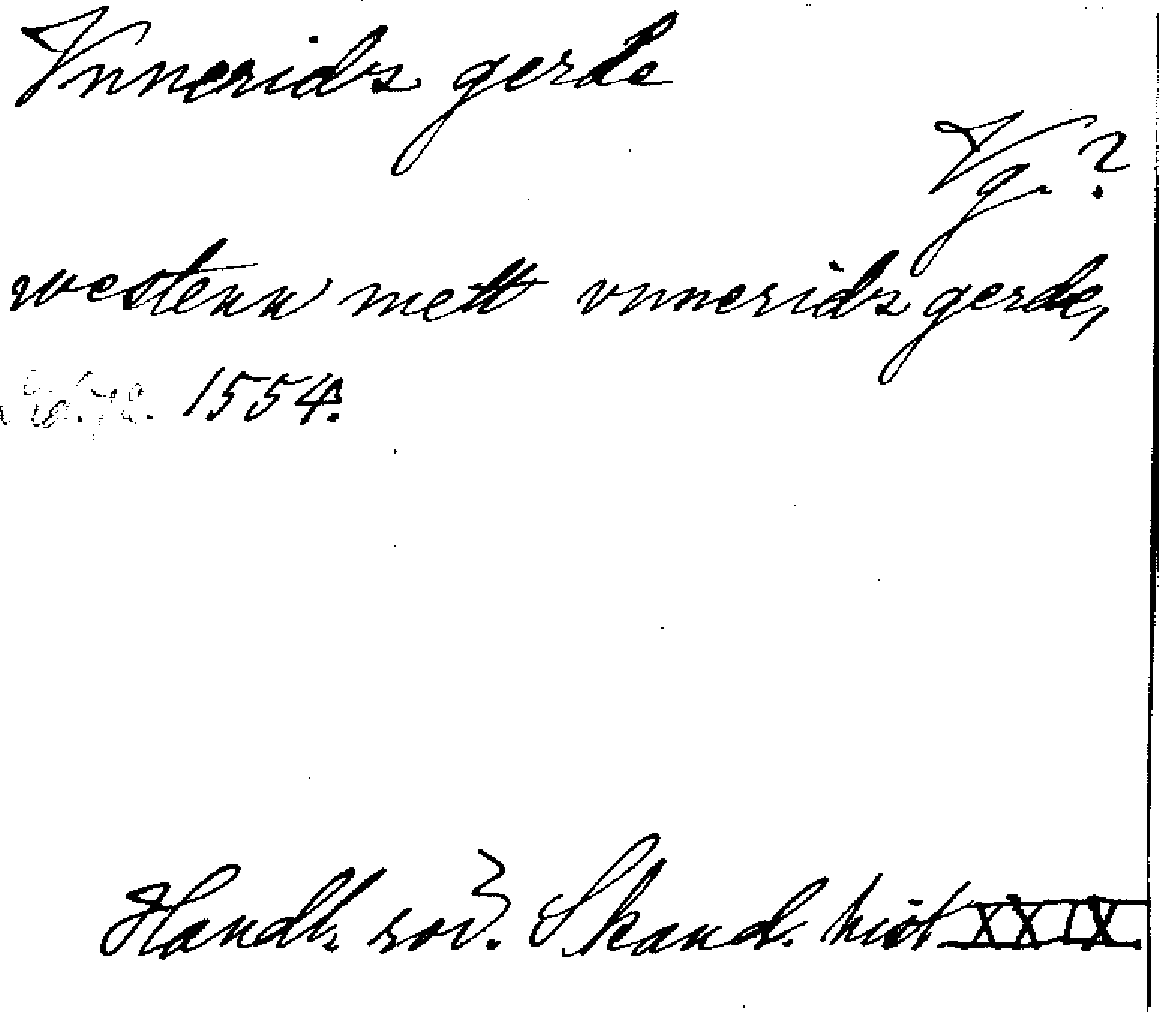 Vnnerids gerde
Vg. ?
westenn mett vnnerids gerde,
1554.
Handl. rör. Skand. hist XXIX.